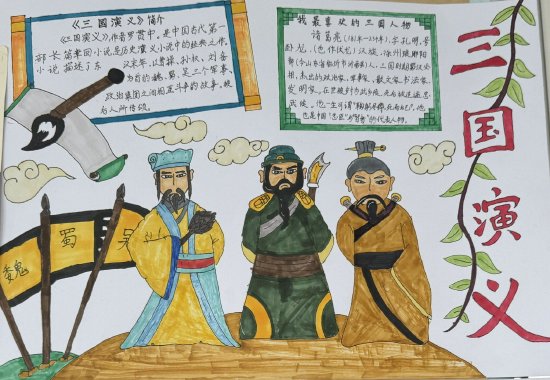 《三国演义》简介
《三国演义》,作者罗贯中,是中国古代第一
部长篇章回小说,是历史演义小说中的经典之作。
小说描述了东
汉末年,以曹操、刘备、孙权
为首的魏、蜀、吴三个军事、
政治集团之间的相互斗争的故事。被
后人所传颂。
我最喜欢的三国人物
诸葛亮(181年—234年),字孔明,号
卧龙,(也作伏龙)汉族,徐州琅琊阳都
(今山东省临沂市沂南县)人,三国时期蜀汉丞
相,杰出的政治家、军事家、散文家、书法家、
发明家。在世被封为武乡侯,死后被追谥忠
武侯。他一生可谓"鞠躬尽瘁,死而后已"。他
也是中国"忠臣"与"智者"的代表人物。
三国演义
魏
蜀
吴